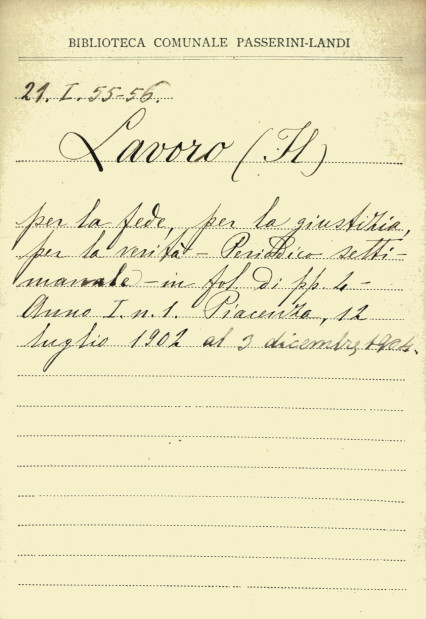 BIBLIOTECA COMUNALE PASSERINI-LANDI
21. I. 55-56.
Lavoro (Il)
per la fede, per la giustizia,
per la verità - Periodico setti-
manale - in fol. di pp. 4 -
Anno I. n. 1. Piacenza, 12
luglio 1902 al 3 dicembre 1904.